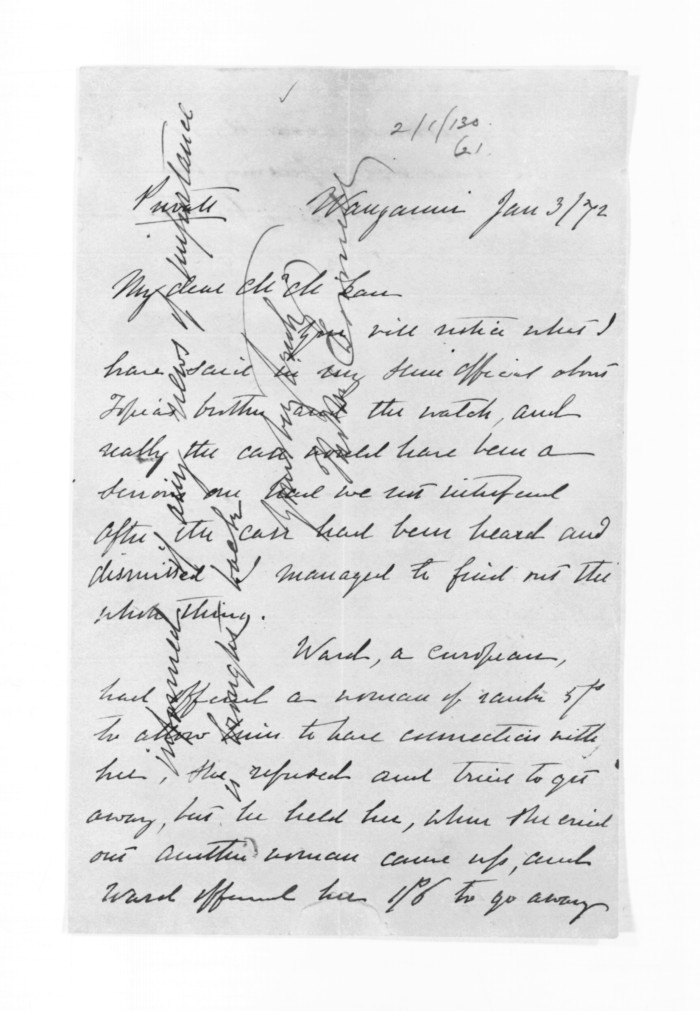 2/1/130.
61.
Private
Wanganui Jan 3/72
My dear McLean
You will notice what I
have said in my semi official about
Topia's brother and the watch, and
really the case would have been a
serious one had we not interfered
After the case had been heard and
dismissed I managed to find out the
whole thing.
Ward, a european,
had offered a woman of rank 5/-
to allow him to have connection with
her, she refused and tried to get
away, but he held her, when she cried
out another woman came up, and
Ward offered her 1/6 to go away
informed if any news of importance
is brought back
Yours very truly